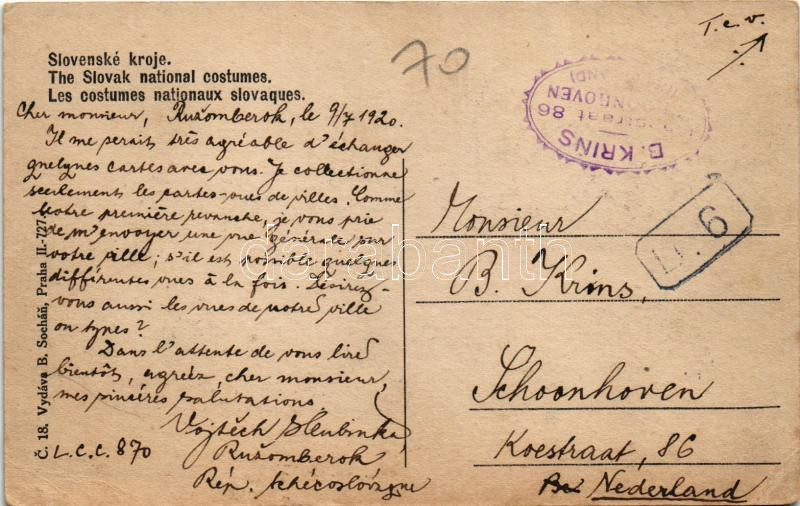 T.c.v.
70
Slovenské kroje.
The Slovak national costumes.
Les costumes nationaux slovaques.
Cher monsieur, Ružomberok, le 9/7 1920.
Il me serait très agréable d'échanger
quelques cartes avec vous. Je collectionne
seulement les cartes-vues de villes. Comme
Votre première revanche, je vous prie
de m'envoyer une vue générale sur
votre ville; s'il est possible quelques
différentes vues à la fois. Désirez-
vous aussi les vues de notre ville
ou types?
Dans l'attente de vous lire
bientôt, agréez, cher monsieur,
mes sincères salutations
Vojtěch
Ružomberok
Rép. tchécoslovaque
L.C.C. 870
Č. 18. Vydává B. Socháň, Praha II.-727.
B. KRINS
straat 86
NHOVEN
AND)
6
Monsieur
B. Krins,
Schoonhoven
Koestraat, 86
Be Nederland
darabanth